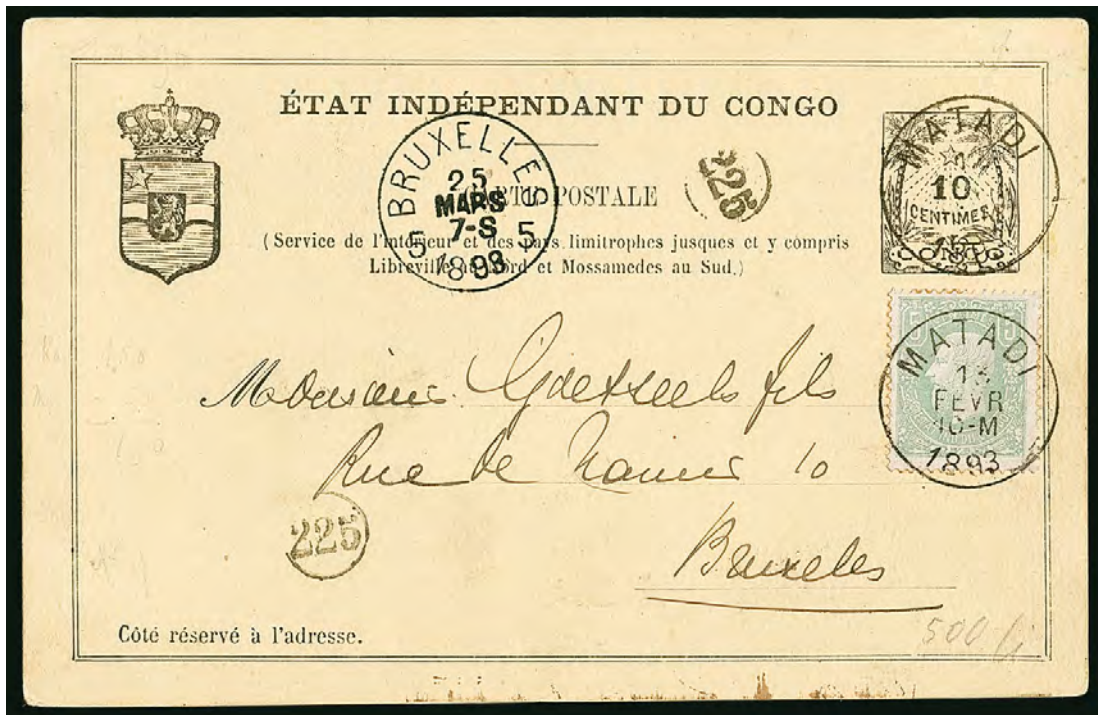 ÉTAT INDÉPENDANT DU CONGO
CARTE POSTALE
(Service de l'Intérieur et des pays limitrophes jusques et y compris
Libreville au Nord et Mossamedes au Sud.)
BRUXELLES
25
MARS
7-S
5 5
1893
225
MATADI
10
CENTIMES
CONGO
5 5
MATADI
13
FEVR
10-M
1893
Monsieur Goetseels fils
Rue de Namur 10
Bruxeles
225
Côté réservé à l'adresse.
500